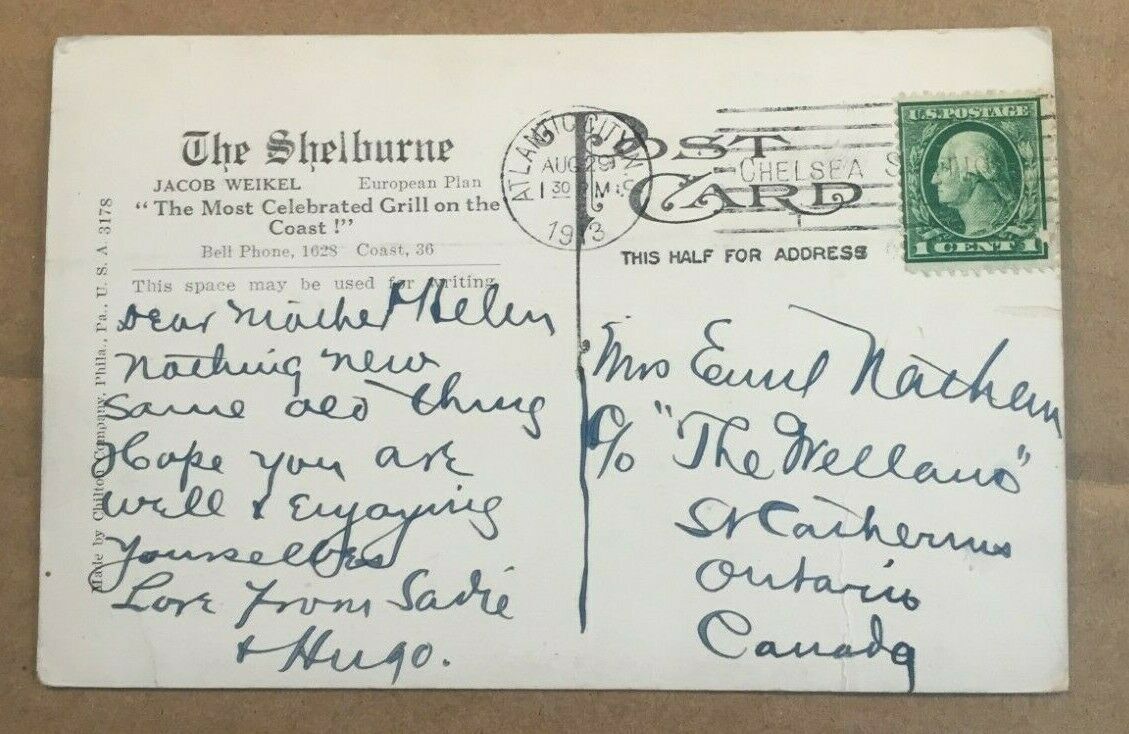 The Shelburne
JACOB WEIKEL European Plan
"The Most Celebrated Grill on the
Coast!"
Bell Phone, 1628 Coast, 36
This space may be used for writing
Made by Chilton Company, Phila., Pa., U. S. A 3178
Dear Mother & Helen
Nothing new
same old thing
Hope you are
well & enjoying
yourselves
Love from Sadie
& Hugo.
POST
CARD
THIS HALF FOR ADDRESS
ATLANTIC CITY, N.
AUG 29
1 30 PM
1913
CHELSEA
U.S. POSTAGE
1 CENT 1
Mrs Emil Nathan
c/o "The Welland"
St Catherines
Ontario
Canada